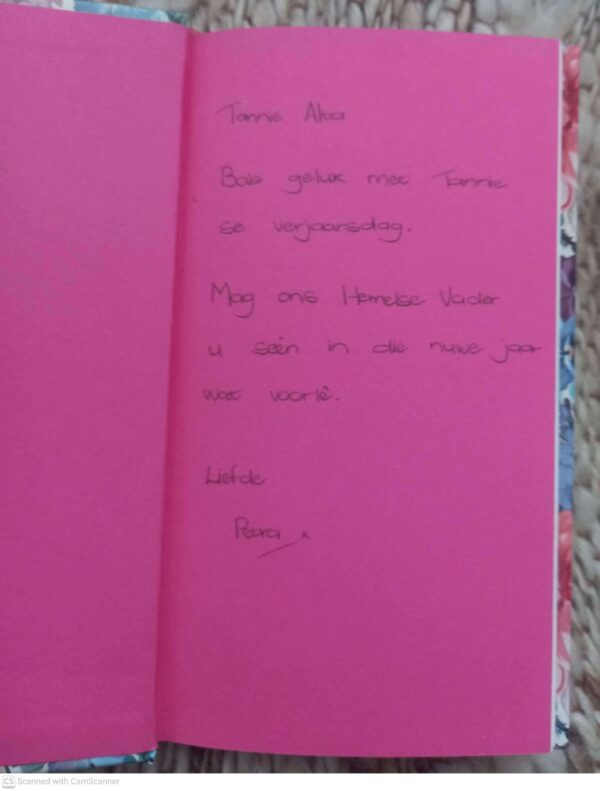 Tannie Alta
Baie geluk met Tannie
se verjaarsdag.
Mag ons Hemelse Vader
u seën in die nuwe jaar
wat voorlê.
Liefde
Petra
CS Scanned with CamScanner